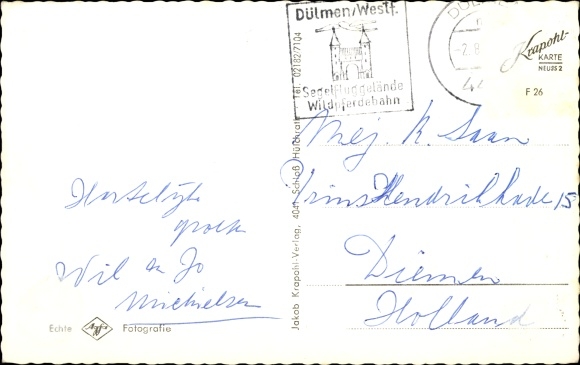 Dülmen/Westf.
Segelfluggelände
Wildpferdebahn
-2.8
44
Krapohl-
KARTE
NEUSS 2
F 26
Mej. K. Saan
Prins Hendrikkade 15
Diemen
Holland
Hartelijke
groeten
Wil en Jo
Michielsen
Jakob Krapohl-Verlag, 4041 Schloß Hülchrath Tel. 02182/7104
Echte Agfa Fotografie